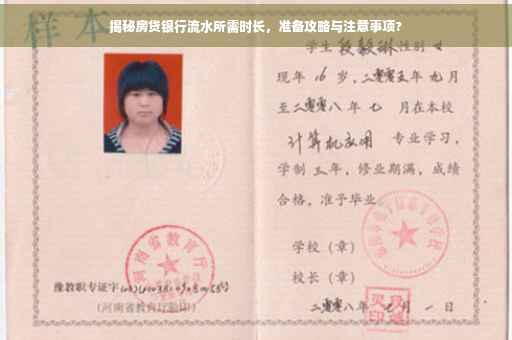 揭秘房贷银行流水所需时长,准备攻略与注意事项?
样本
学生段毅琳性别女
现年16岁,二零零五年九月
至二零零八年七月在本校
计算机应用 专业学习,
学制三年,修业期满,成绩
合格,准予毕业。
学校(章)
校长(章)
二零零八年 月一日
河南省教育厅
豫教职专证字
(河南省教育厅验印)